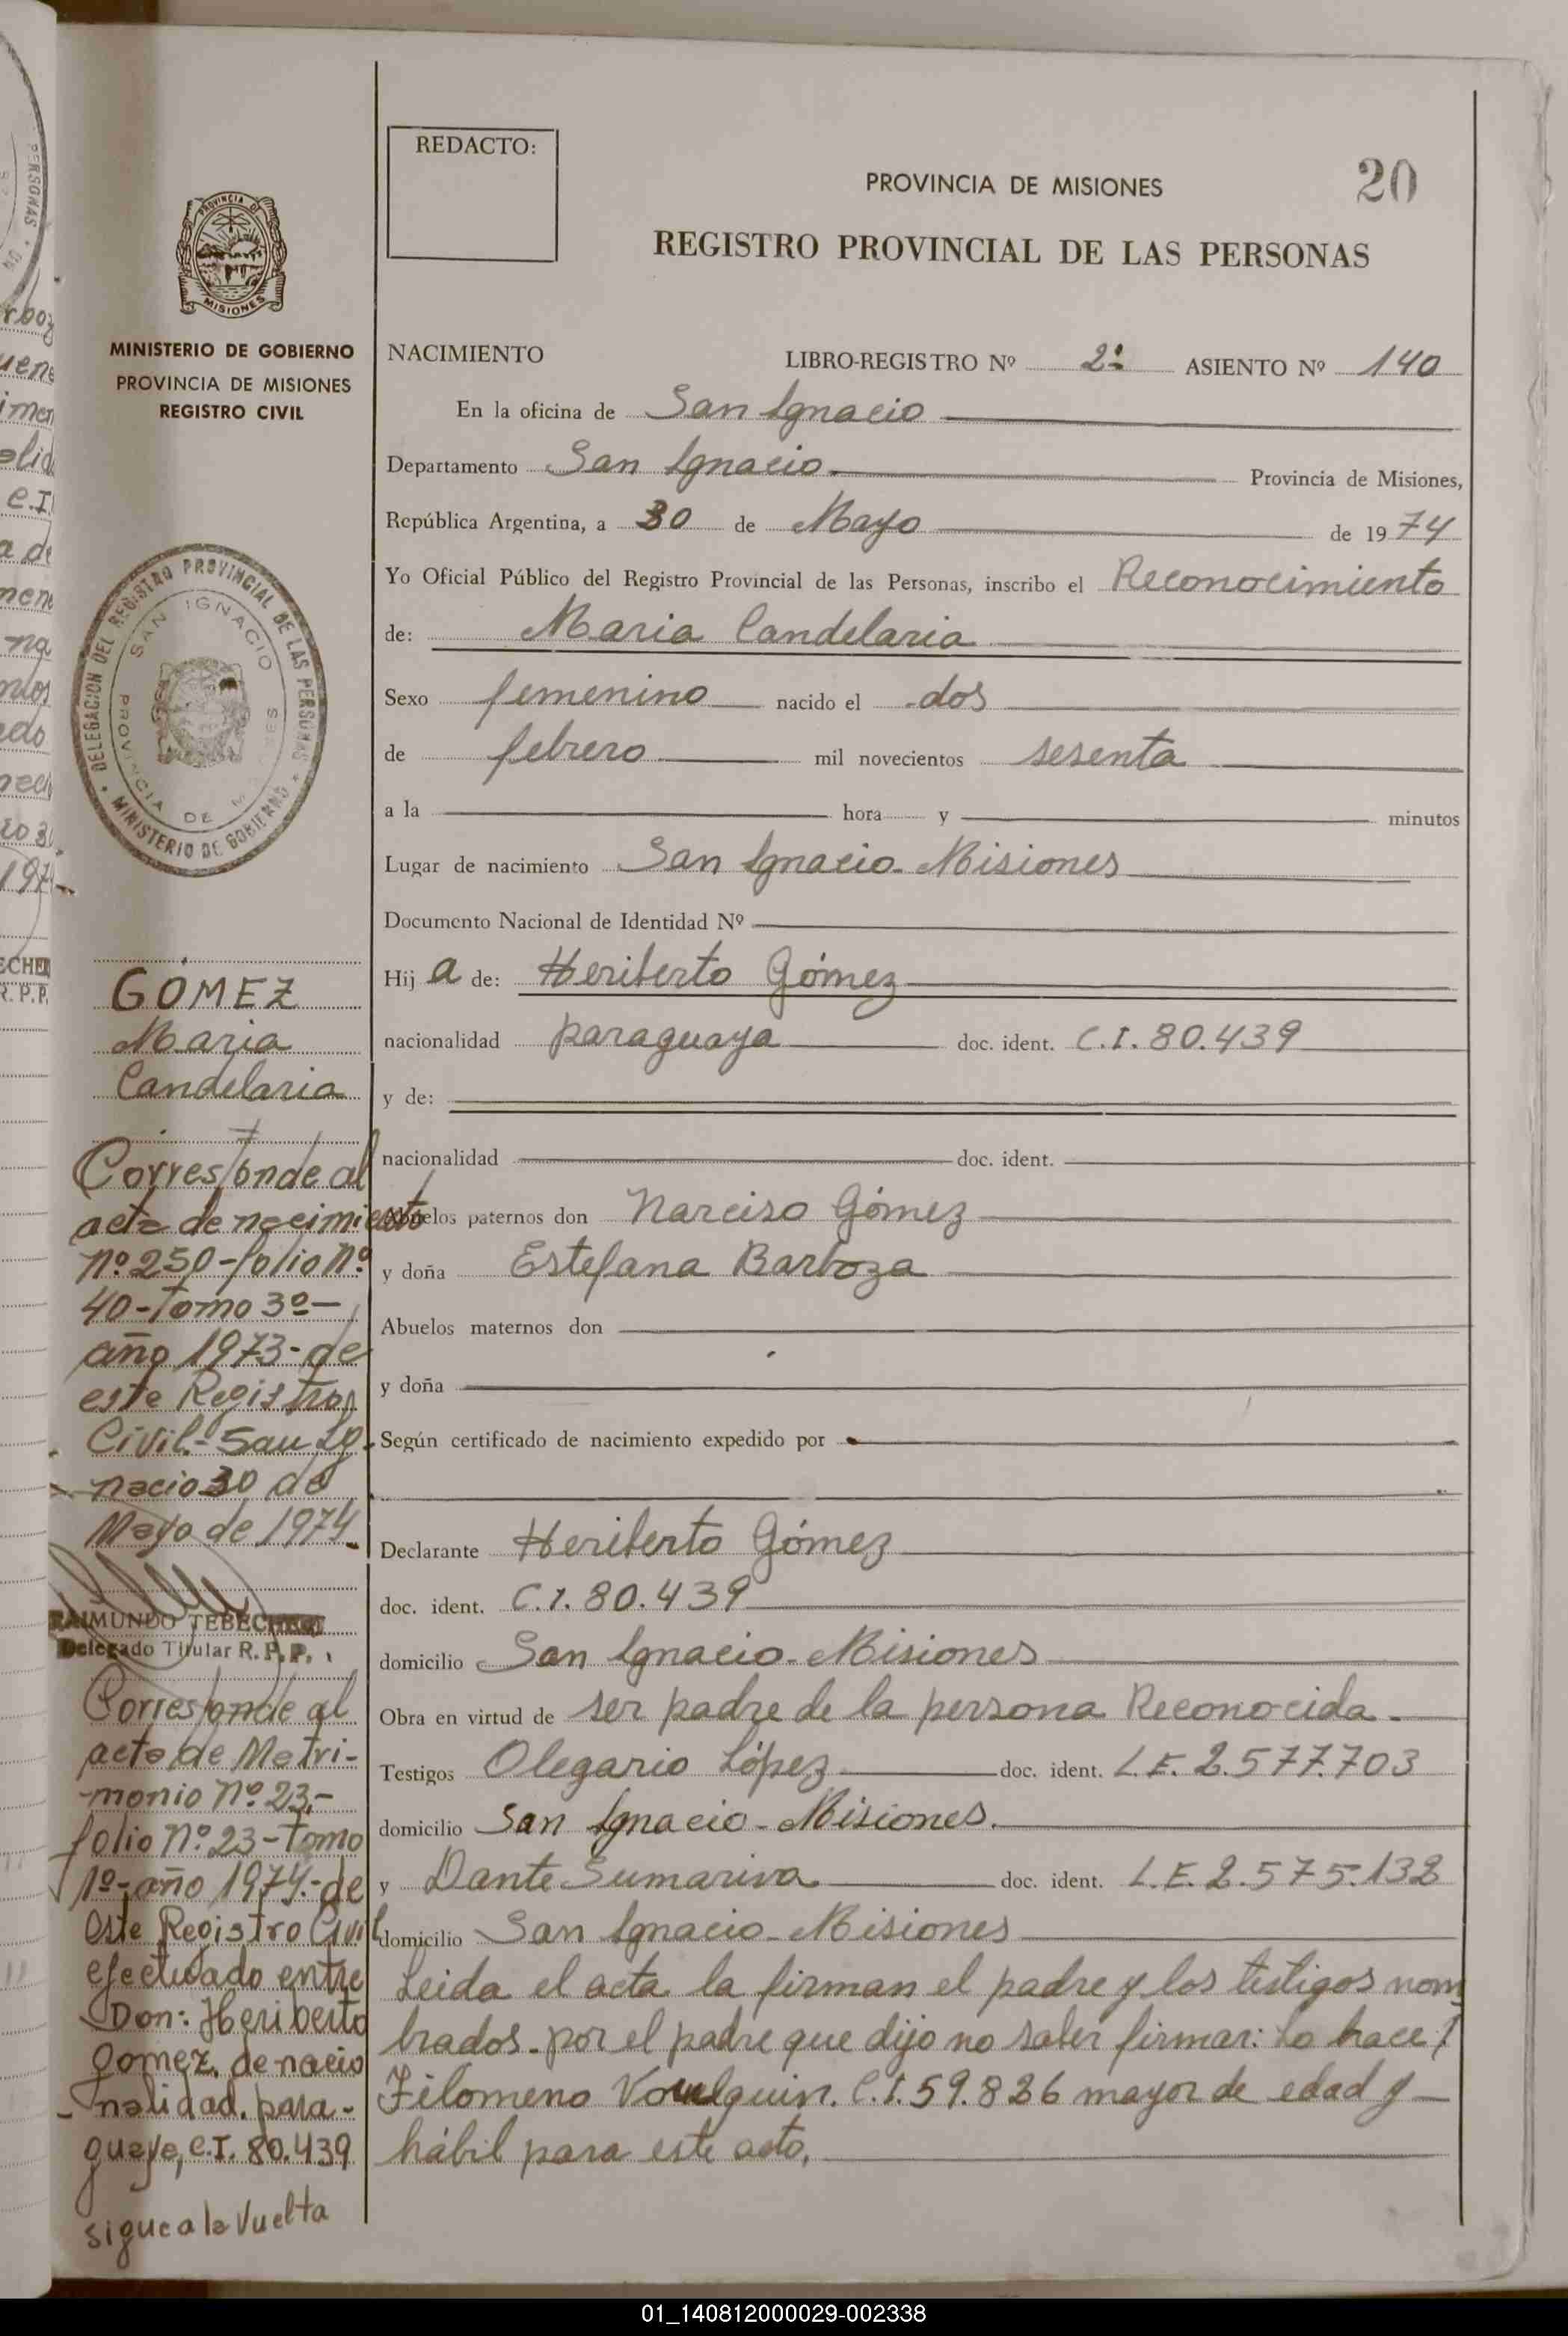 REDACTO:
PROVINCIA DE MISIONES
20
REGISTRO PROVINCIAL DE LAS PERSONAS
PROVINCIA DE
MISIONES
MINISTERIO DE GOBIERNO
PROVINCIA DE MISIONES
REGISTRO CIVIL
DELEGACION DEL REGISTRO PROVINCIAL DE LAS PERSONAS
SAN IGNACIO
PROVINCIA DE MISIONES
MINISTERIO DE GOBIERNO
GOMEZ
Maria
Candelaria
Corresponde al
acta de nacimiento
nº 250-folio nº
40-Tomo 3º-
año 1973-de
este Registro
Civil.-San Ig-
nacio 30 de
Mayo de 1974.
RAIMUNDO TEBECHERI
Delegado Titular R. P. P.
Corresponde al
acta de Matri-
monio nº 23,-
folio nº 23-Tomo
1º-año 1974.-de
este Registro Civil
efectuado entre
Don: Heriberto
gomez, de nacio
nalidad, para-
guaya, C.I. 80.439
sigue a la Vuelta
NACIMIENTO LIBRO-REGISTRO Nº 2º ASIENTO Nº 140
En la oficina de San Ignacio
Departamento San Ignacio Provincia de Misiones,
República Argentina, a 30 de Mayo de 1974
Yo Oficial Público del Registro Provincial de las Personas, inscribo el Reconocimiento
de: Maria Candelaria
Sexo femenino nacido el dos
de febrero mil novecientos sesenta
a la hora y minutos
Lugar de nacimiento San Ignacio-Misiones
Documento Nacional de Identidad Nº
Hij a de: Heriberto Gómez
nacionalidad paraguaya doc. ident. C.I. 80.439
y de:
nacionalidad doc. ident.
Abuelos paternos don Narciso Gómez
y doña Estefana Barboza
Abuelos maternos don
y doña
Según certificado de nacimiento expedido por
Declarante Heriberto Gómez
doc. ident. C.I. 80.439
domicilio San Ignacio-Misiones
Obra en virtud de ser padre de la persona Reconocida.
Testigos Olegario López doc. ident. L.E. 2.577.703
domicilio San Ignacio-Misiones.
y Dante Sumariva doc. ident. L.E. 2.575.132
domicilio San Ignacio-Misiones
Leida el acta la firman el padre y los testigos nom
brados. por el padre que dijo no saber firmar: Lo hace
Filomeno C.I. 59.826 mayor de edad y
hábil para este acto.
01_140812000029-002338